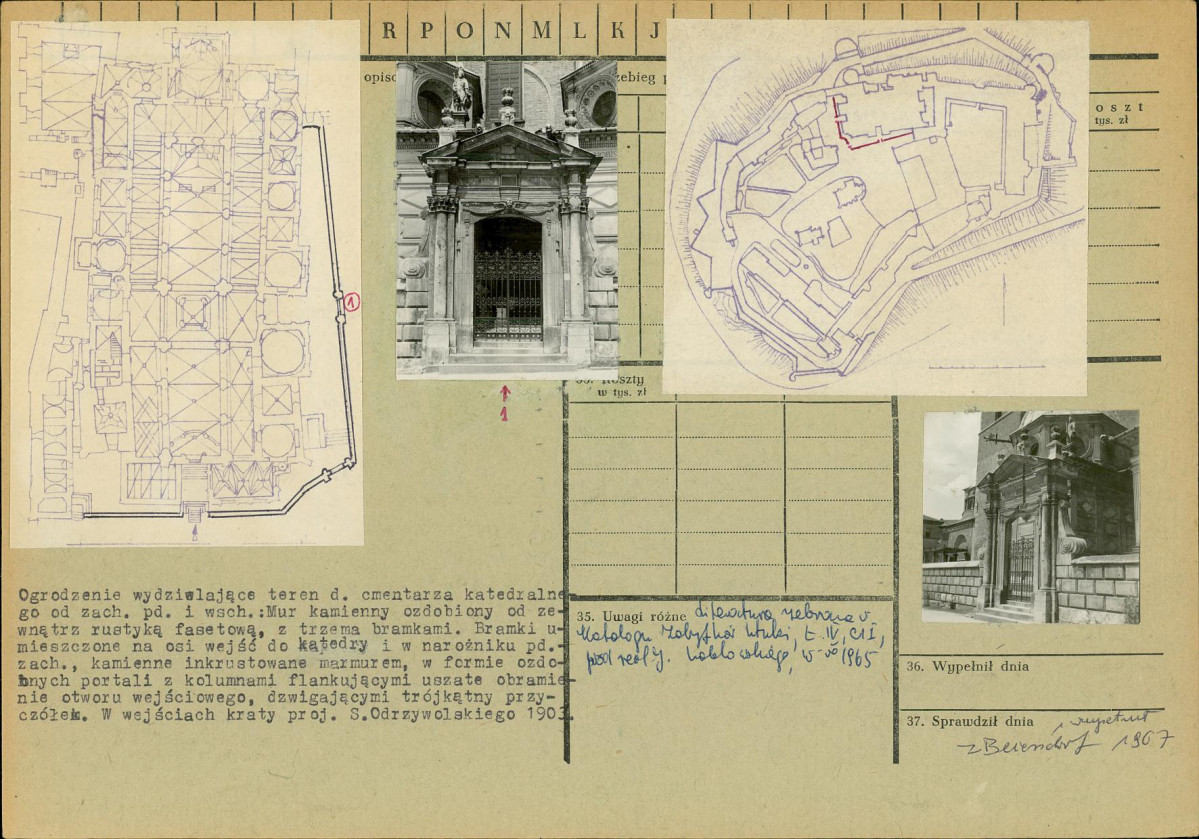 R P O N M L K J
opis
zebieg p
oszt
tys. zł
1
1
35. Koszty
w tys. zł
Ogrodzenie wydzielające teren d. cmentarza katedralne
go od zach. pd. i wsch.:Mur kamienny ozdobiony od ze-
wnątrz rustyką fasetową, z trzema bramkami. Bramki u-
mieszczone na osi wejść do katedry i w narożniku pd.-
zach., kamienne inkrustowane marmurem, w formie ozdo
bnych portali z kolumnami flankującymi uszate obramie
nie otworu wejściowego, dzwigającymi trójkątny przy-
czółek. W wejściach kraty proj. S.Odrzywolskiego 1903.
35. Uwagi różne literatura zebrana w
Katalogu Zabytków Sztuki, t. IV, cz I,
pod red. J. W-wa 1965
36. Wypełnił dnia
37. Sprawdził dnia
1967